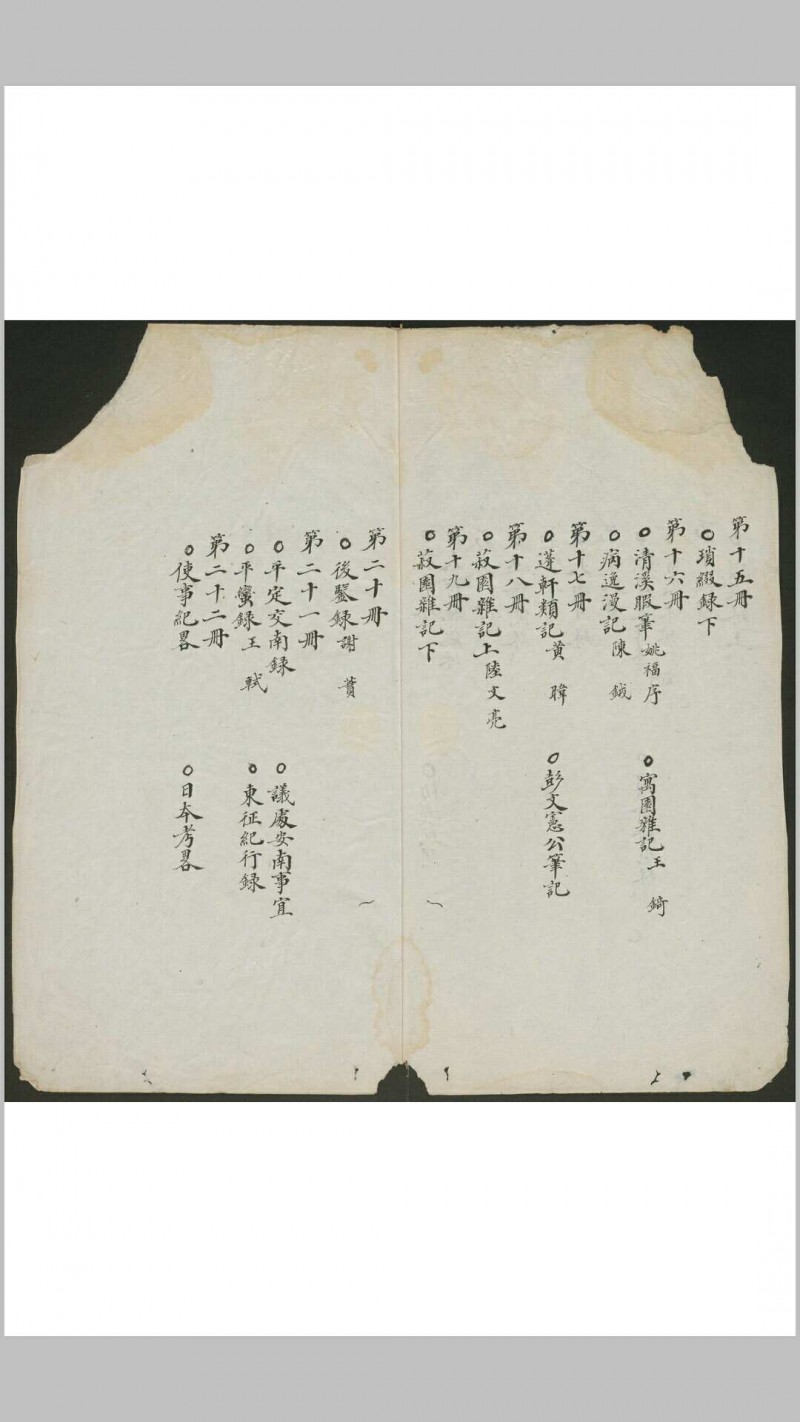 第十五冊
○瑣綴録下
第十六冊
○清溪暇筆 姚福序 ○寓圃雜記 王錡
○病逸漫記 陳
第十七冊
○蓬軒類記 黄暐 ○彭文憲公筆記
第十八冊
○菽園雜記上 陸文亮
第十九冊
○菽園雜記下
第二十冊
○後鑒録 謝蕡
第二十一冊
○平定交南録 ○議處安南事宜
○平蠻録 王軾 ○東征紀行録
第二十二冊
○使事紀畧 ○日本考畧